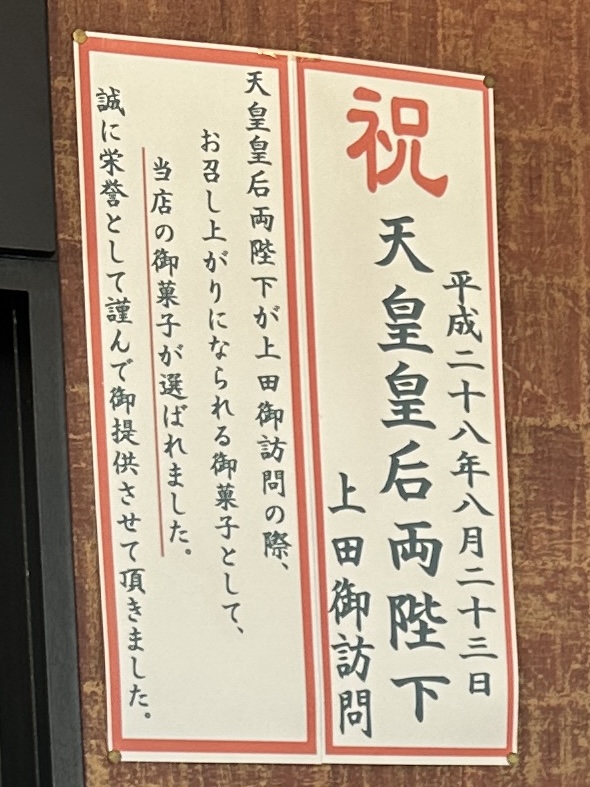 祝
平成二十八年八月二十三日
天皇皇后両陛下
上田御訪問
天皇皇后両陛下が上田御訪問の際、
お召し上がりになられる御菓子として、
当店の御菓子が選ばれました。
誠に栄誉として謹んで御提供させて頂きました。